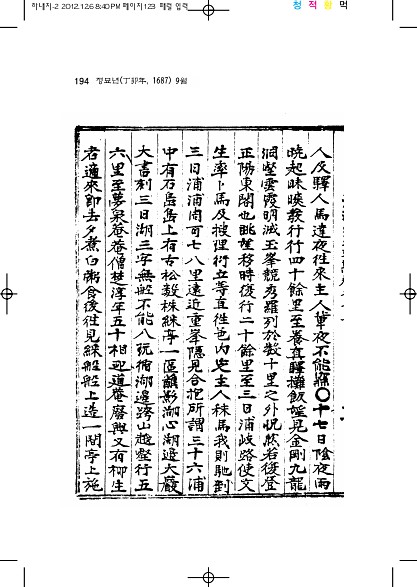 하내지-2 2012.12.6 8:40 PM 페이지123 제령 입력
청 적 황 먹
194 정묘년(丁卯年, 1687) 9월
人及驛人馬達夜往來主人輩夜不能寢〇十七日陰夜雨
曉起昧暎發行行四十餘里至養眞驛攤飯姪見金剛九龍
洞壑雲霞明滅玉峯競秀羅列於數十里之外怳然若復登
正陽東閣也眺望移時復行二十餘里至三日浦岐路使文
生率卜馬及被裡衍立等直往邑內定主人秣馬我則馳到
三日浦浦周可七八里遠近重峯隱見合抱所謂三十六浦
中有石島島上有古松數株綠亭一區蘸影湖心湖邊大巖
大書刻三日湖三字無船不能入玩循湖邊跨山趨壑行五
六里至夢泉菴菴僧楚淳年五十相迎道菴磨興又有柳生
者適來卽去夕煮白粥食後往見綠船船上造一間亭上施